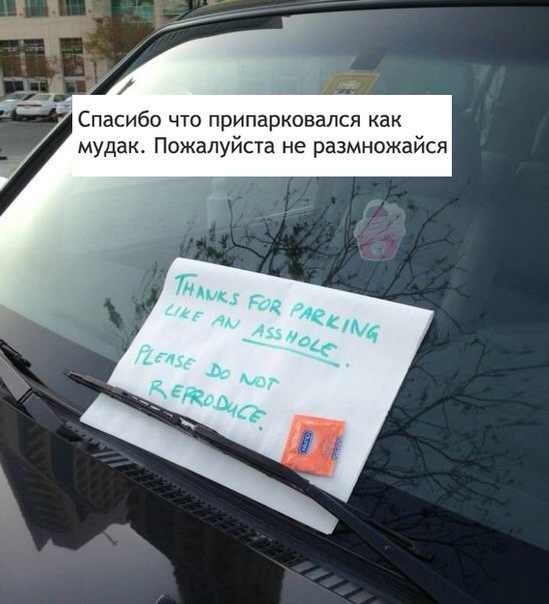 Спасибо что припарковался как
мудак. Пожалуйста не размножайся
THANKS FOR PARKING
LIKE AN ASSHOLE.
PLEASE DO NOT
REPRODUCE.